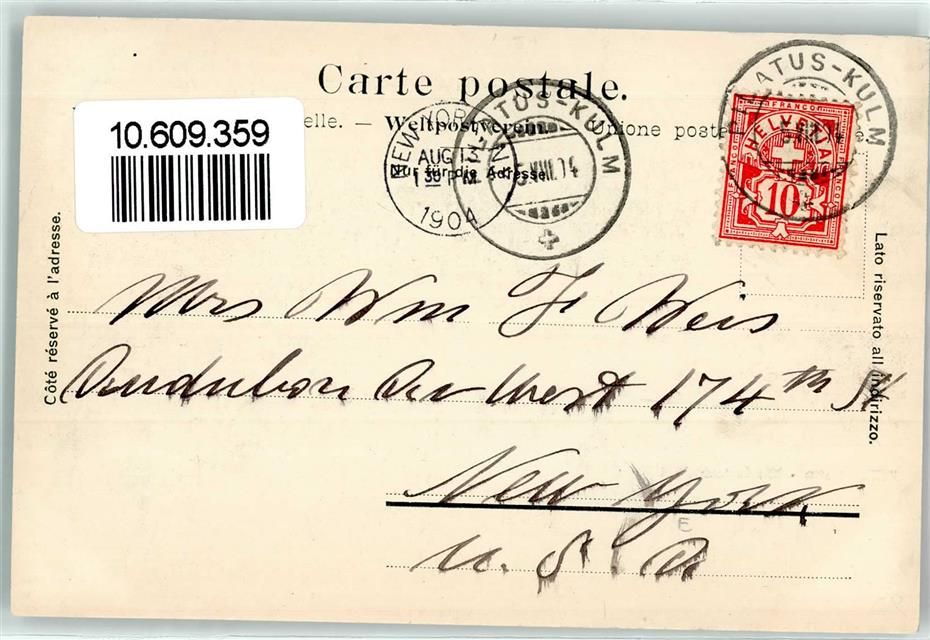 Carte postale.
10.609.359
elle. — Weltpostverein. — Unione postale
Nur für die Adresse.
NEW YORK, N.Y.
AUG 13
1 30 PM
1904
PILATUS-KULM
VIII.14
PILATUS-KULM
FRANCO
HELVETIA
10
Côté réservé à l'adresse.
Lato riservato all'indirizzo.
Mrs Wm F Weis
Audubon Av West 174th St
New York
E
U. S. A